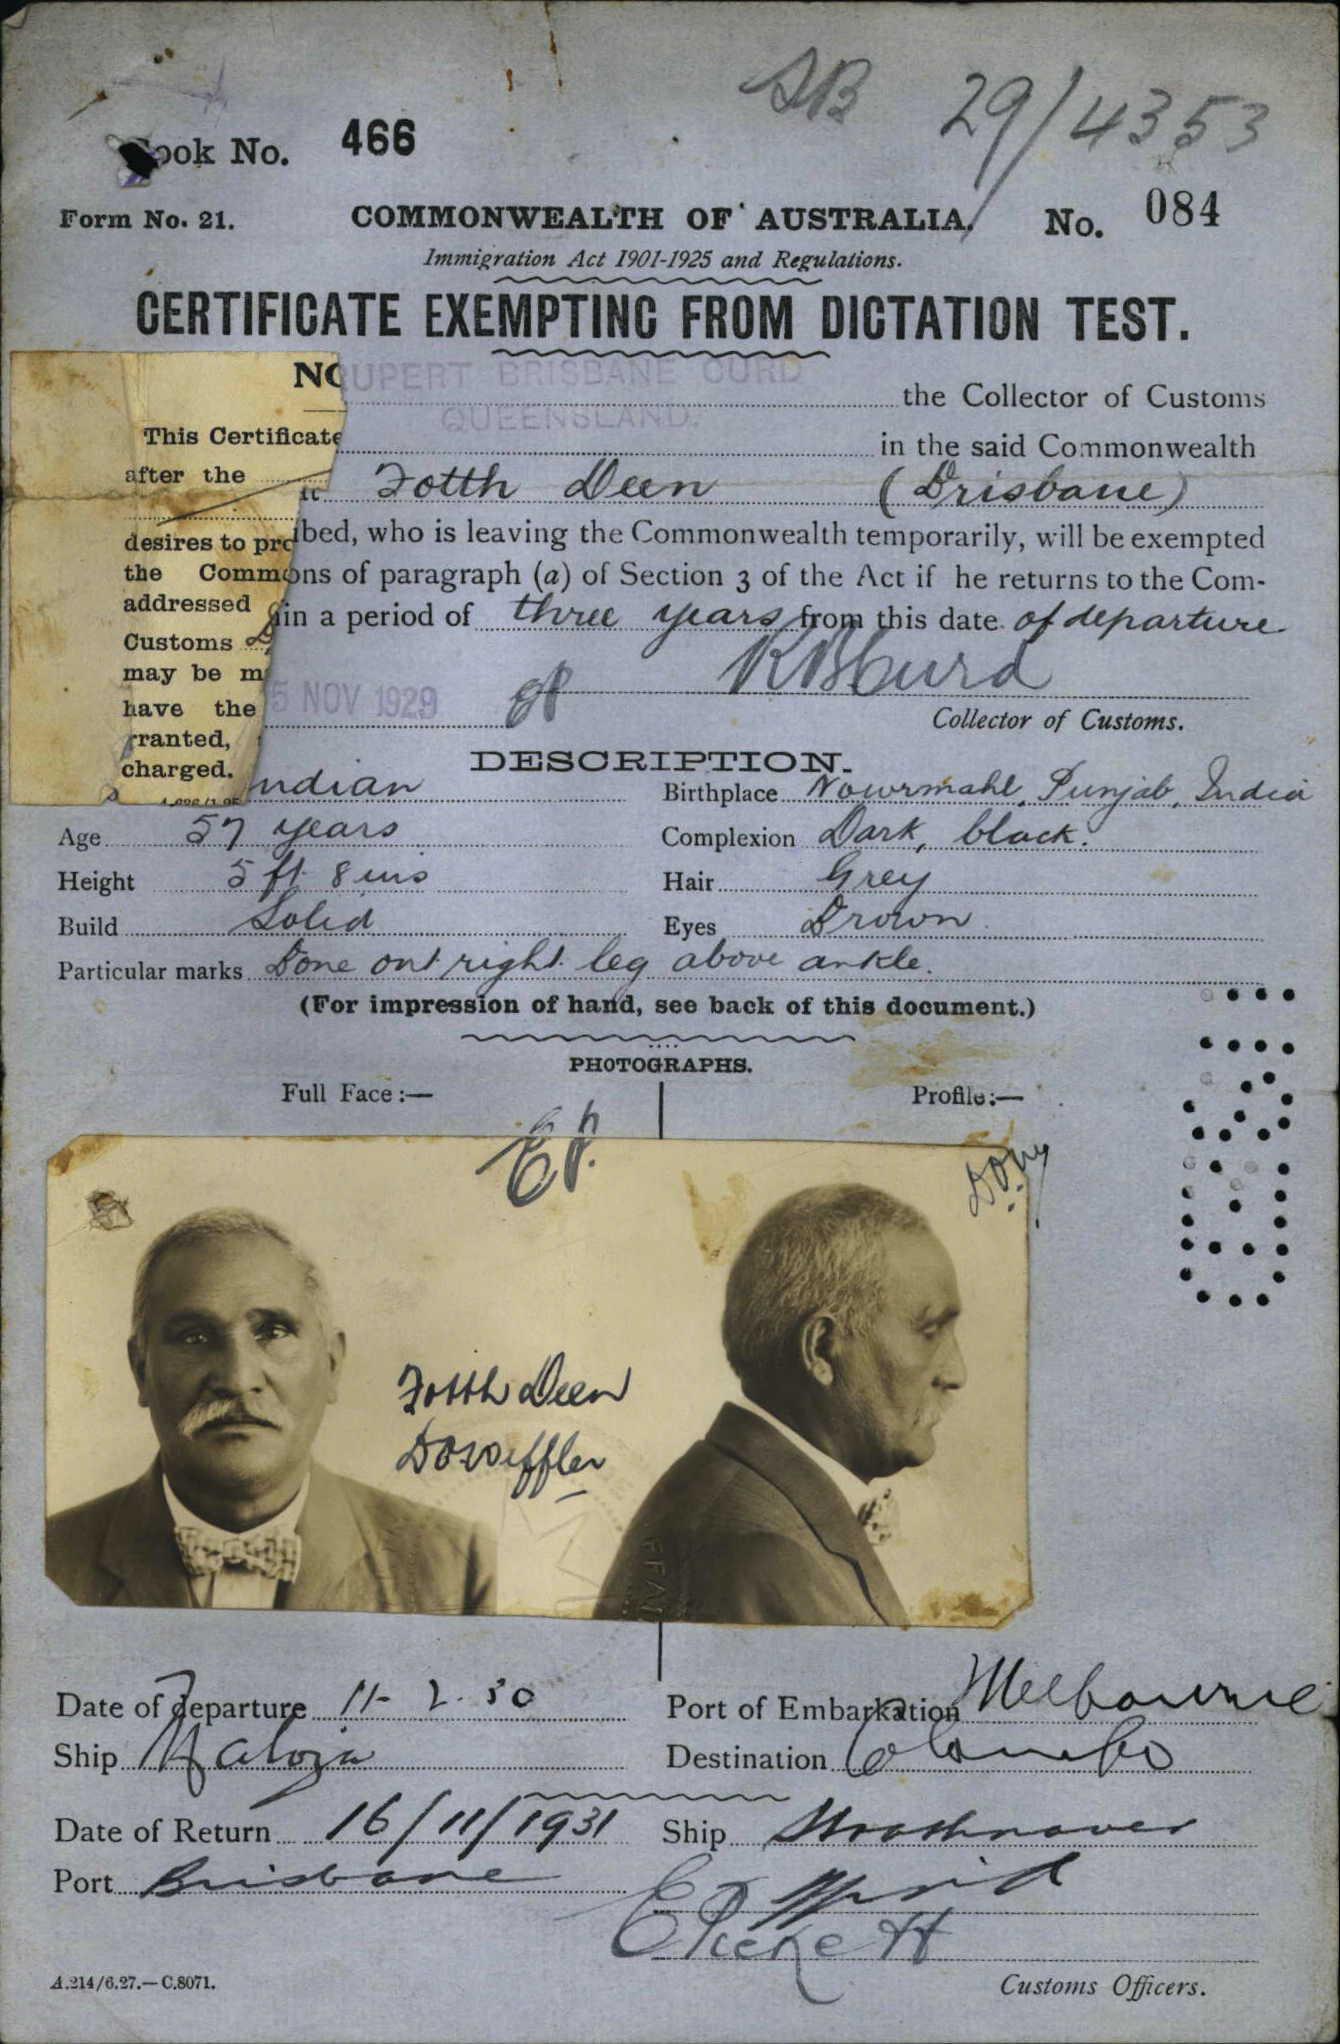 SB 29/4353
Book No. 466
Form No. 21. COMMONWEALTH OF AUSTRALIA. No. 084
Immigration Act 1901-1925 and Regulations.
CERTIFICATE EXEMPTING FROM DICTATION TEST.
NO
RUPERT BRISBANE CURD the Collector of Customs
QUEENSLAND.
This Certificate in the said Commonwealth
after the
Fotth Deen (Brisbane)
desires to pro
ibed, who is leaving the Commonwealth temporarily, will be exempted
the Comm
ons of paragraph (a) of Section 3 of the Act if he returns to the Com-
addressed
in a period of three years from this date of departure
Customs
may be m
RBCurd
have the
5 NOV 1929
Collector of Customs.
rranted,
charged.
DESCRIPTION.
Indian Birthplace Nowrmahl, Punjab, India
Age 57 years Complexion Dark, black.
Height 5 ft 8 ins Hair Grey
Build Solid Eyes Brown
Particular marks Bone out right leg above ankle.
(For impression of hand, see back of this document.)
PHOTOGRAPHS.
Full Face:— Profile:—
Fotth Deen
Date of departure 11-2.30 Port of Embarkation Melbourne
Ship Maloja Destination Colombo
Date of Return 16/11/1931 Ship Strathnaver
Port Brisbane
Customs Officers.
A.214/6.27.—C.8071.